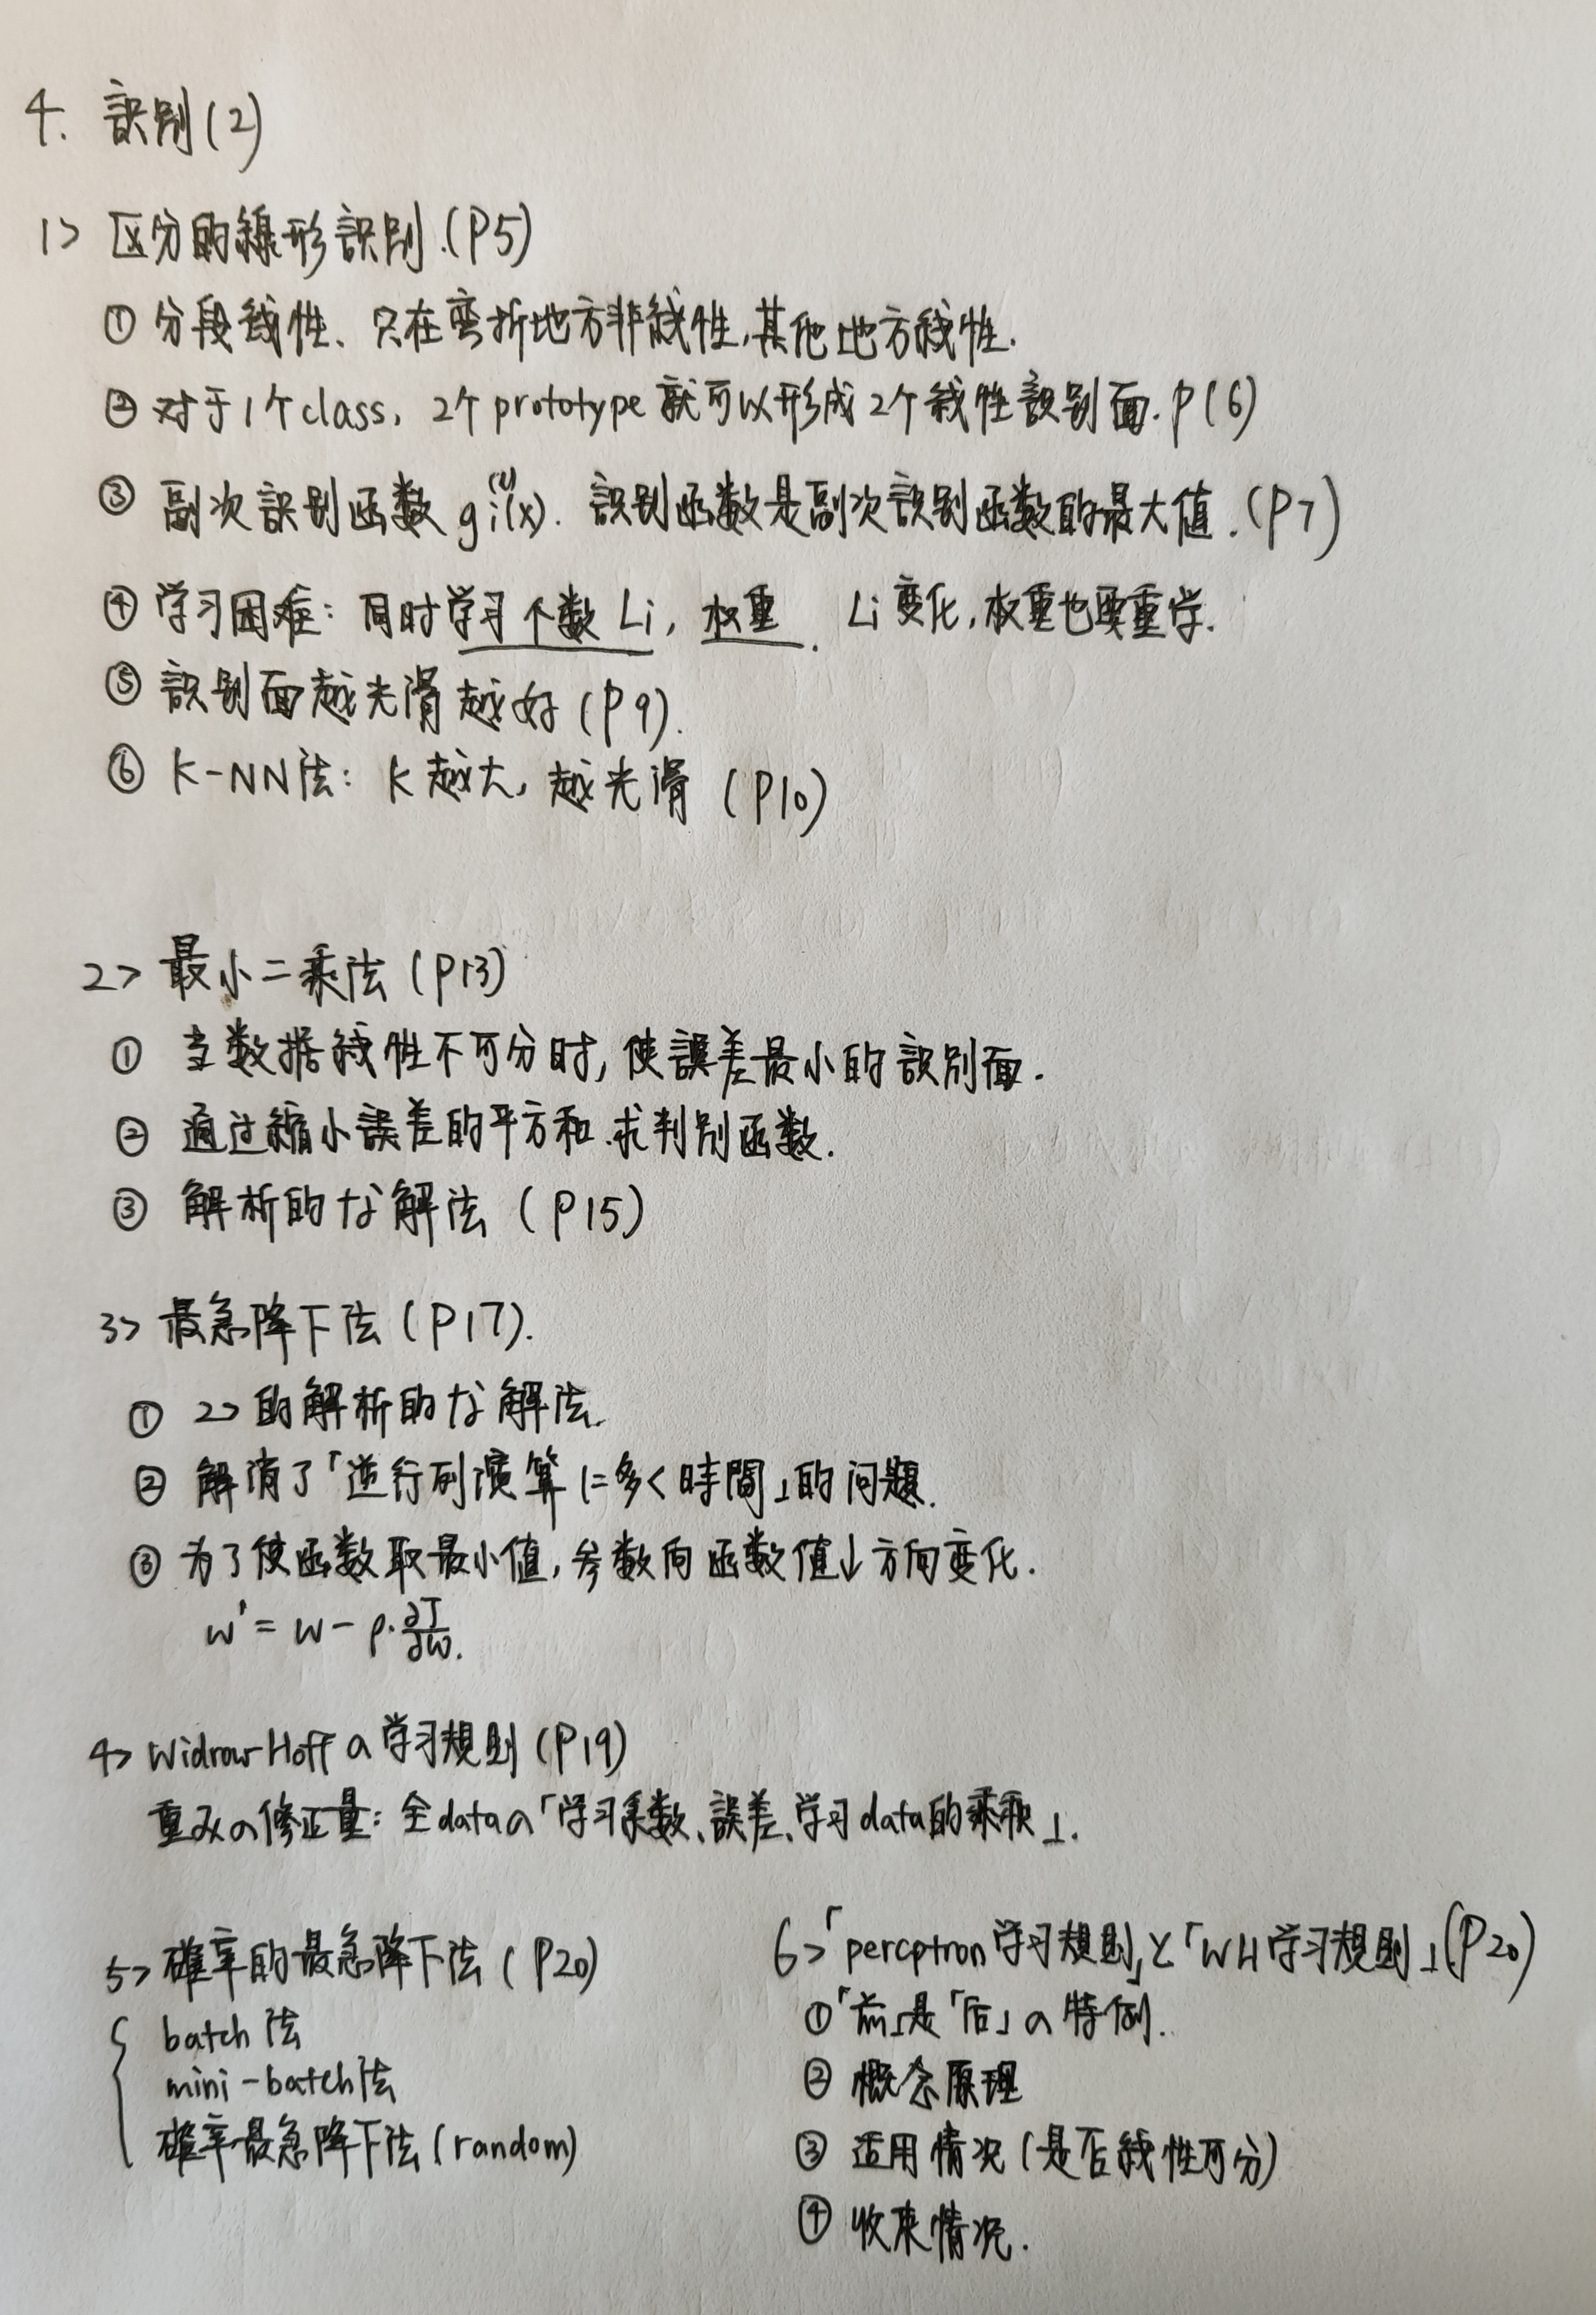 4. 識別(2)
1> 区分的線形識別.(P5)
① 分段线性、只在弯折地方非线性,其他地方线性.
② 对于1个class, 2个prototype就可以形成2个线性識别面.P(6)
③ 副次識别函数 gi⁽ˡ⁾(x). 識别函数是副次識别函数的最大值.(P7)
④ 学习困难: 同时学习个数 Li, 权重. Li变化,权重也要重学.
⑤ 識别面越光滑越好(P9).
⑥ K-NN法: K越大,越光滑 (P10)
2> 最小二乘法 (P13)
① 当数据线性不可分时,使誤差最小的識别面.
② 通过縮小誤差的平方和.求判别函数.
③ 解析的な解法 (P15)
3> 最急降下法 (P17).
① 2>的解析的な解法.
② 解消了「逆行列演算に多く時間」的问题.
③ 为了使函数取最小值,参数向函数值↓方向变化.
w' = w - ρ·∂J/∂w.
4> Widrow-Hoffの学习規則 (P19)
重みの修正量: 全dataの「学习系数、誤差、学习data的乘积」.
5> 確率的最急降下法 (P20)
batch法
mini-batch法
確率最急降下法(random)
6>「percptron学习規則」と「WH学习規則」(P20)
①「前」是「后」の特例.
② 概念原理
③ 适用情况(是否线性可分)
④ 收束情况.